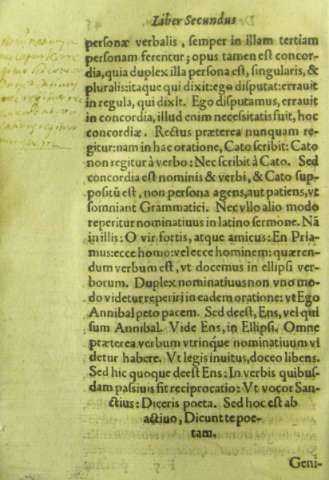 Liber Secundus
personæ verbalis, semper in illam tertiam
personam ferentur; opus tamen est concor-
dia, quia duplex illa persona est, singularis, &
pluralis: itaque qui dixit: ego disputat: errauit
in regula, qui dixit. Ego disputamus, errauit
in concordia, illud enim necessitatis fuit, hoc
concordiæ. Rectus præterea nunquam re-
gitur: nam in hac oratione, Cato scribit: Cato
non regitur à verbo: Nec scribit à Cato. Sed
concordia est nominis & verbi, & Cato sup-
positū est, non persona agens, aut patiens, vt
somniant Grammatici. Nec vllo alio modo
reperitur nominatiuus in latino sermone. Nā
in illis: O vir fortis, atque amicus: En Pria-
mus: ecce homo: vel ecce hominem: quæren-
dum verbum est, vt docemus in ellipsi ver-
borum. Duplex nominatiuus non vno mo-
do videtur reperiri in eadem oratione: vt Ego
Annibal peto pacem. Sed deest, Ens, vel qui
sum Annibal. Vide Ens, in Ellipsi. Omne
præterea verbum vtrinque nominatiuum vi
detur habere. Vt legis inuitus, doceo libens.
Sed hic quoque deest Ens: In verbis quibus-
dam passiuis fit reciprocatio: Vt vocor San-
ctius: Diceris poeta. Sed hoc est ab
actiuo, Dicunt te poe-
tam.
Geni-